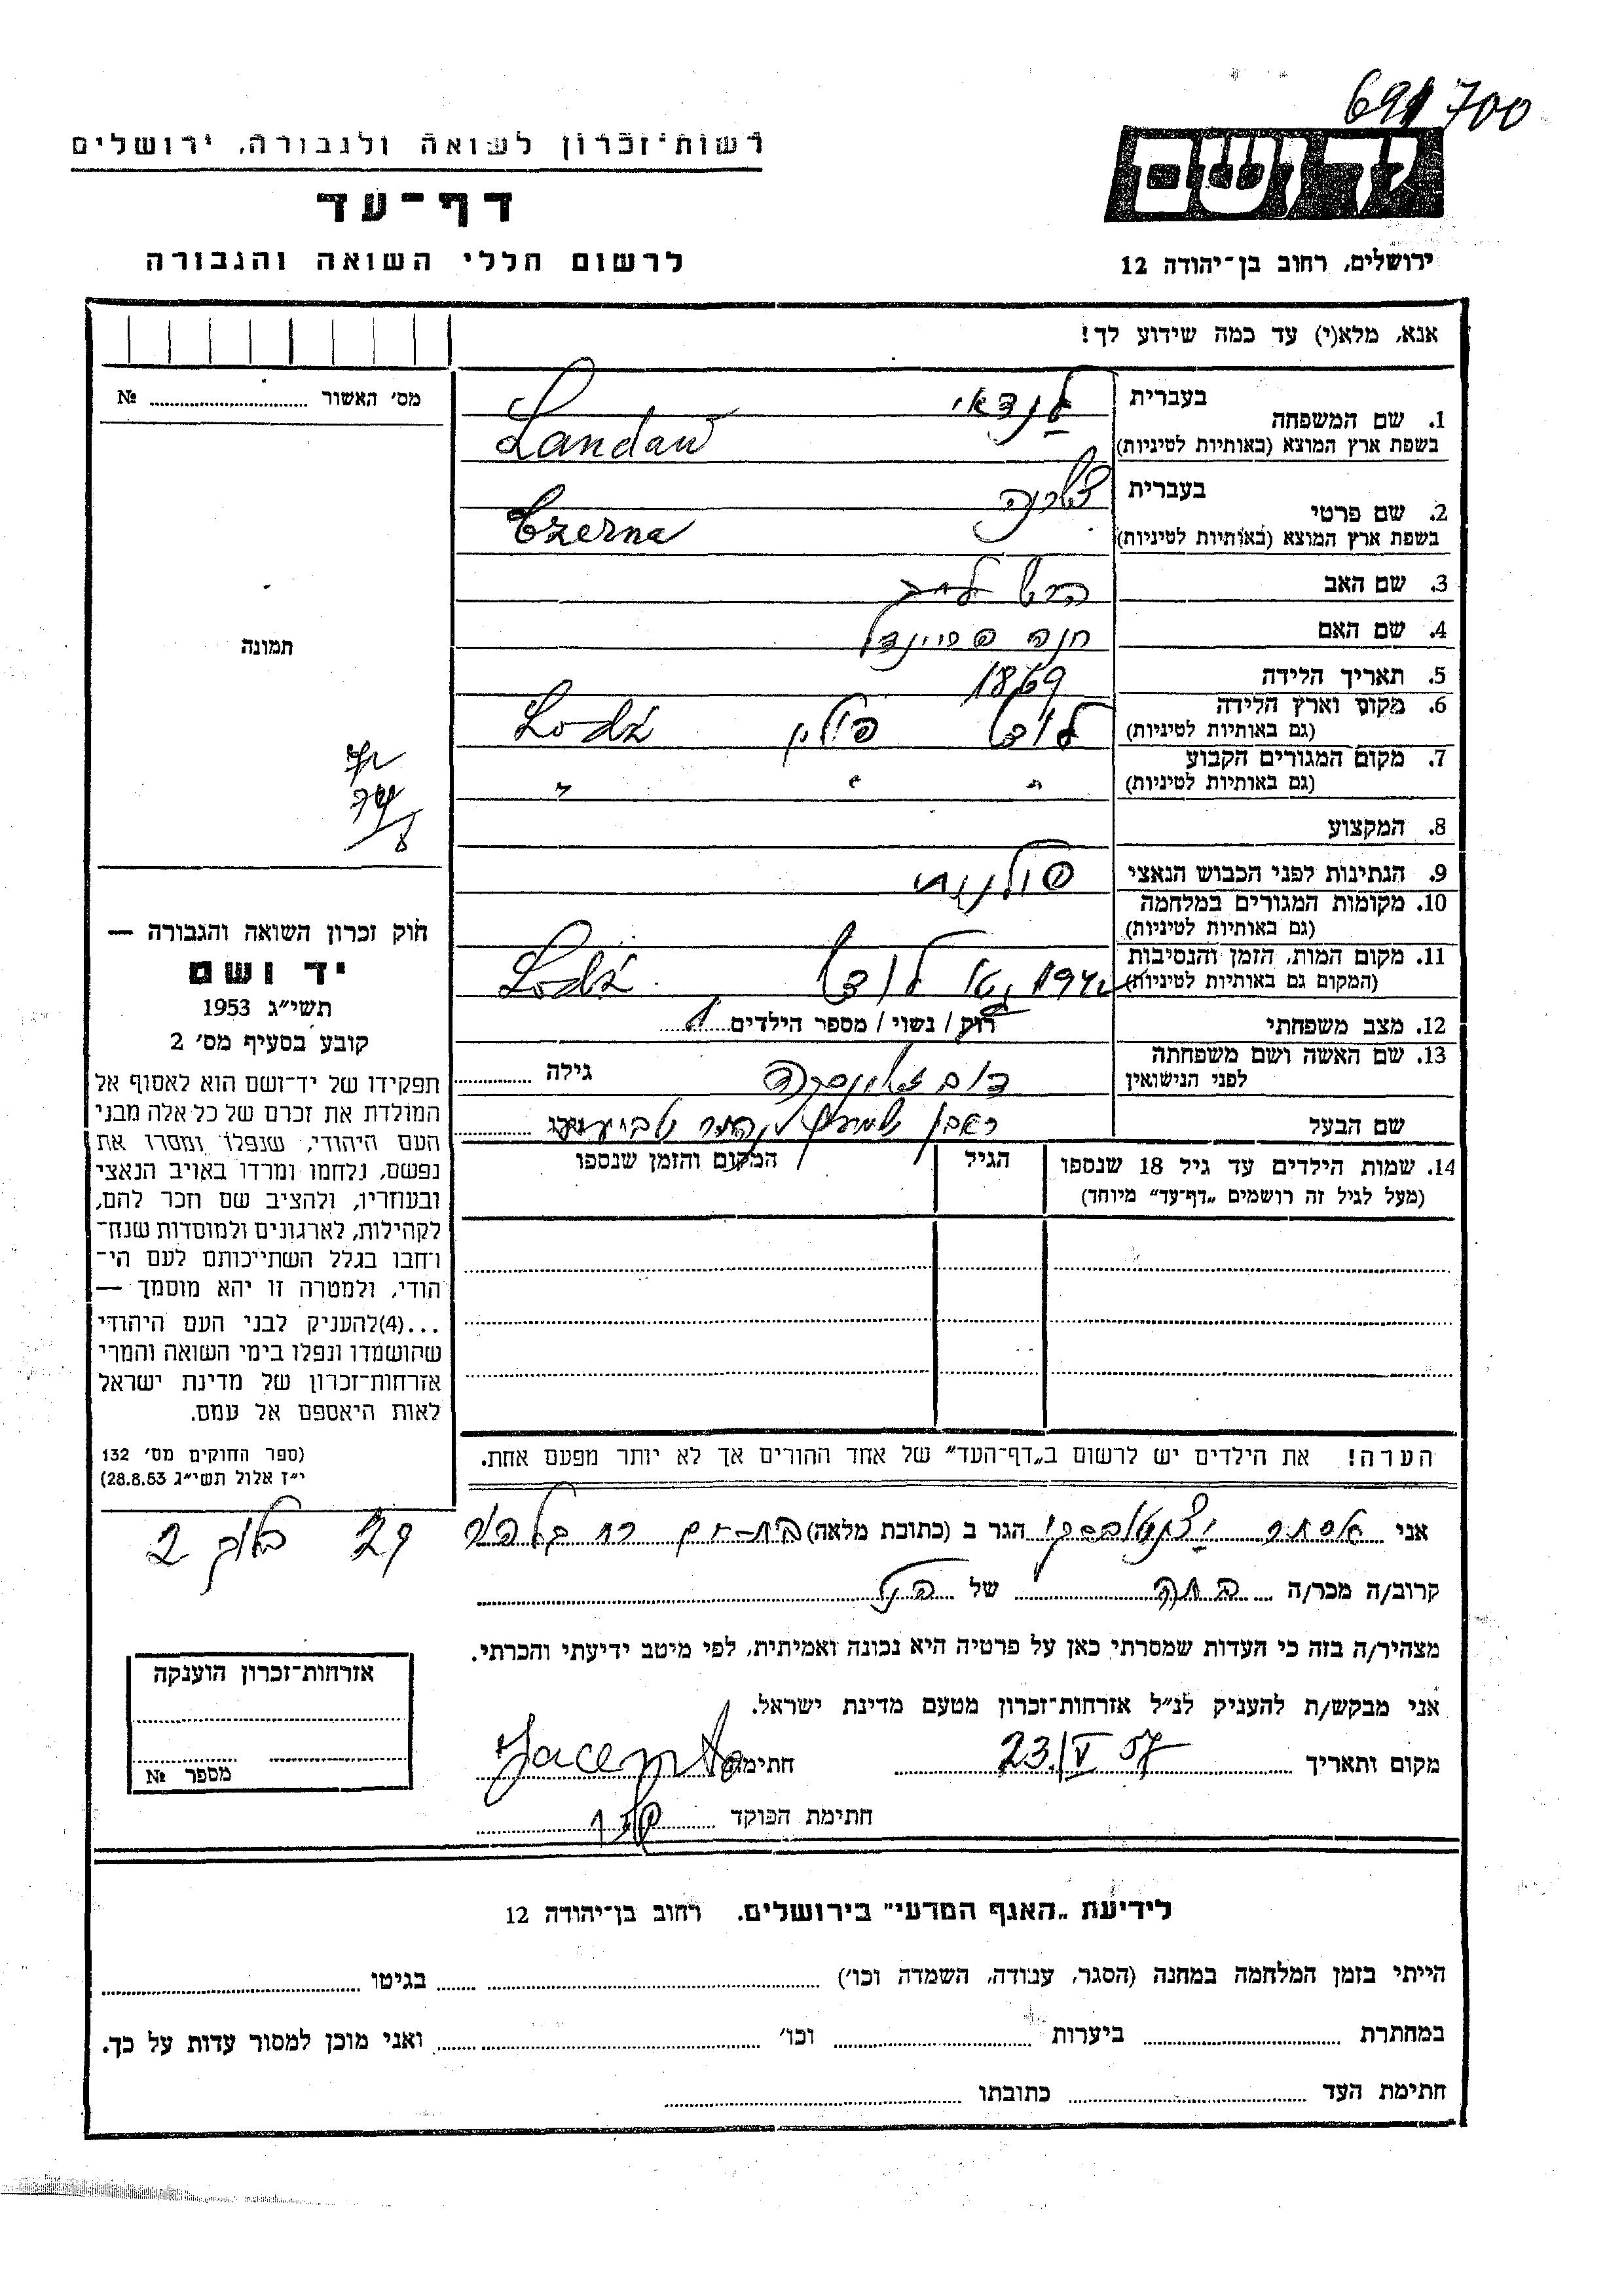 691700
רשות־זכרון לשואה ולגבורה, ירושלים
יד ושם
דף־עד
לרשום חללי השואה והגבורה
ירושלים, רחוב בן־יהודה 12
אנא, מלא(י) עד כמה שידוע לך!
מס׳ האשור № 
1. שם המשפחה
בעברית לנדאו
בשפת ארץ המוצא (באותיות לטיניות) Landau
2. שם פרטי
בעברית
בשפת ארץ המוצא (באותיות לטיניות) Czerna
3. שם האב הרש לייב
4. שם האם חנה פריינדל
5. תאריך הלידה 1869
6. מקום וארץ הלידה לודז פולין Lodź
(גם באותיות לטיניות)
7. מקום המגורים הקבוע " " "
(גם באותיות לטיניות)
8. המקצוע
9. הנתינות לפני הכבוש הנאצי פולנית
10. מקומות המגורים במלחמה
(גם באותיות לטיניות)
11. מקום המות, הזמן והנסיבות לודז Lodź
(המקום גם באותיות לטיניות)
12. מצב משפחתי רוק / נשוי / מספר הילדים 1
13. שם האשה ושם משפחתה
לפני הנישואין גילה
שם הבעל ראובן
14. שמות הילדים עד גיל 18 שנספו הגיל המקום והזמן שנספו
(מעל לגיל זה רושמים „דף־עד״ מיוחד)
תמונה
חוק זכרון השואה והגבורה —
יד ושם
תשי״ג 1953
קובע בסעיף מס׳ 2
תפקידו של יד־ושם הוא לאסוף אל
המולדת את זכרם של כל אלה מבני
העם היהודי, שנפלו ומסרו את
נפשם, נלחמו ומרדו באויב הנאצי
ובעוזריו, ולהציב שם וזכר להם,
לקהילות, לארגונים ולמוסדות שנח־
רחבו בגלל השתייכותם לעם הי־
הודי, ולמטרה זו יהא מוסמך —
...(4)להעניק לבני העם היהודי
שהושמדו ונפלו בימי השואה והמרי
אזרחות־זכרון של מדינת ישראל
לאות היאספם אל עמם.
(ספר החוקים מס׳ 132
י״ז אלול תשי״ג 28.8.53)
הערה! את הילדים יש לרשום ב„דף־העד״ של אחד ההורים אך לא יותר מפעם אחת.
אני אסתר הגר ב (כתובת מלאה) בת־ים רח 29 בלוק 2
קרוב/ה מכר/ה בתה של הנ"ל
מצהיר/ה בזה כי העדות שמסרתי כאן על פרטיה היא נכונה ואמיתית, לפי מיטב ידיעתי והכרתי.
אני מבקש/ת להעניק לנ״ל אזרחות־זכרון מטעם מדינת ישראל.
מקום ותאריך 23/V 57 חתימה
חתימת הפוקד
אזרחות־זכרון הוענקה
מספר №
לידיעת „האגף המדעי״ בירושלים. רחוב בן־יהודה 12
הייתי בזמן המלחמה במחנה (הסגר, עבודה, השמדה וכו׳) בגיטו
במחתרת ביערות וכו׳ ואני מוכן למסור עדות על כך.
חתימת העד כתובתו